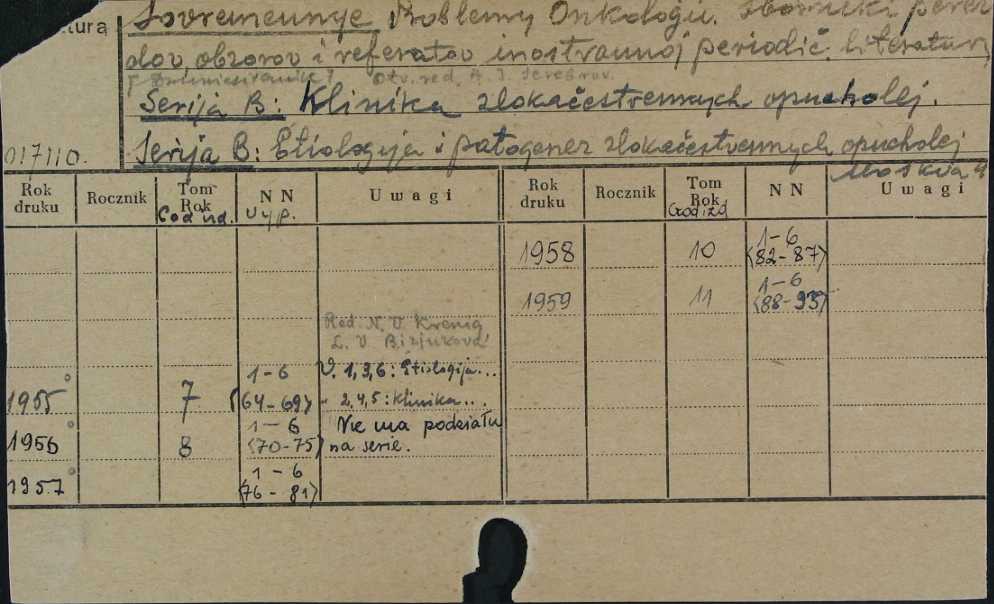 tura
Sovremennye Problemy Onkologii. Sborniki perev
dov, obzorov i referatov inostrannoj periodič. literatury
Otv. red. A. I. Serebrov.
Serija B: Klinika zlokačestvennych opucholej.
017110.
Serija B: Etiologija i patogenez zlokačestvennych opucholej
Moskva
Rok druku | Rocznik | Tom Rok God izd. | NN Vyp. | Uwagi | Rok druku | Rocznik | Tom Rok God izd | NN | Uwagi
1958 | 10 | 1-6 (82-87)
1959 | 11 | 1-6 (88-93)
Red. N. V. Krenig
L. V. Birjukova
1955 | 7 | 1-6 (64-69) | V. 1,3,6: Etiologija...
- 2,4,5: Klinika...
1956 | 8 | 1-6 (70-75) | Nie ma podziału
na serie.
1957 | 1-6 (76-81)